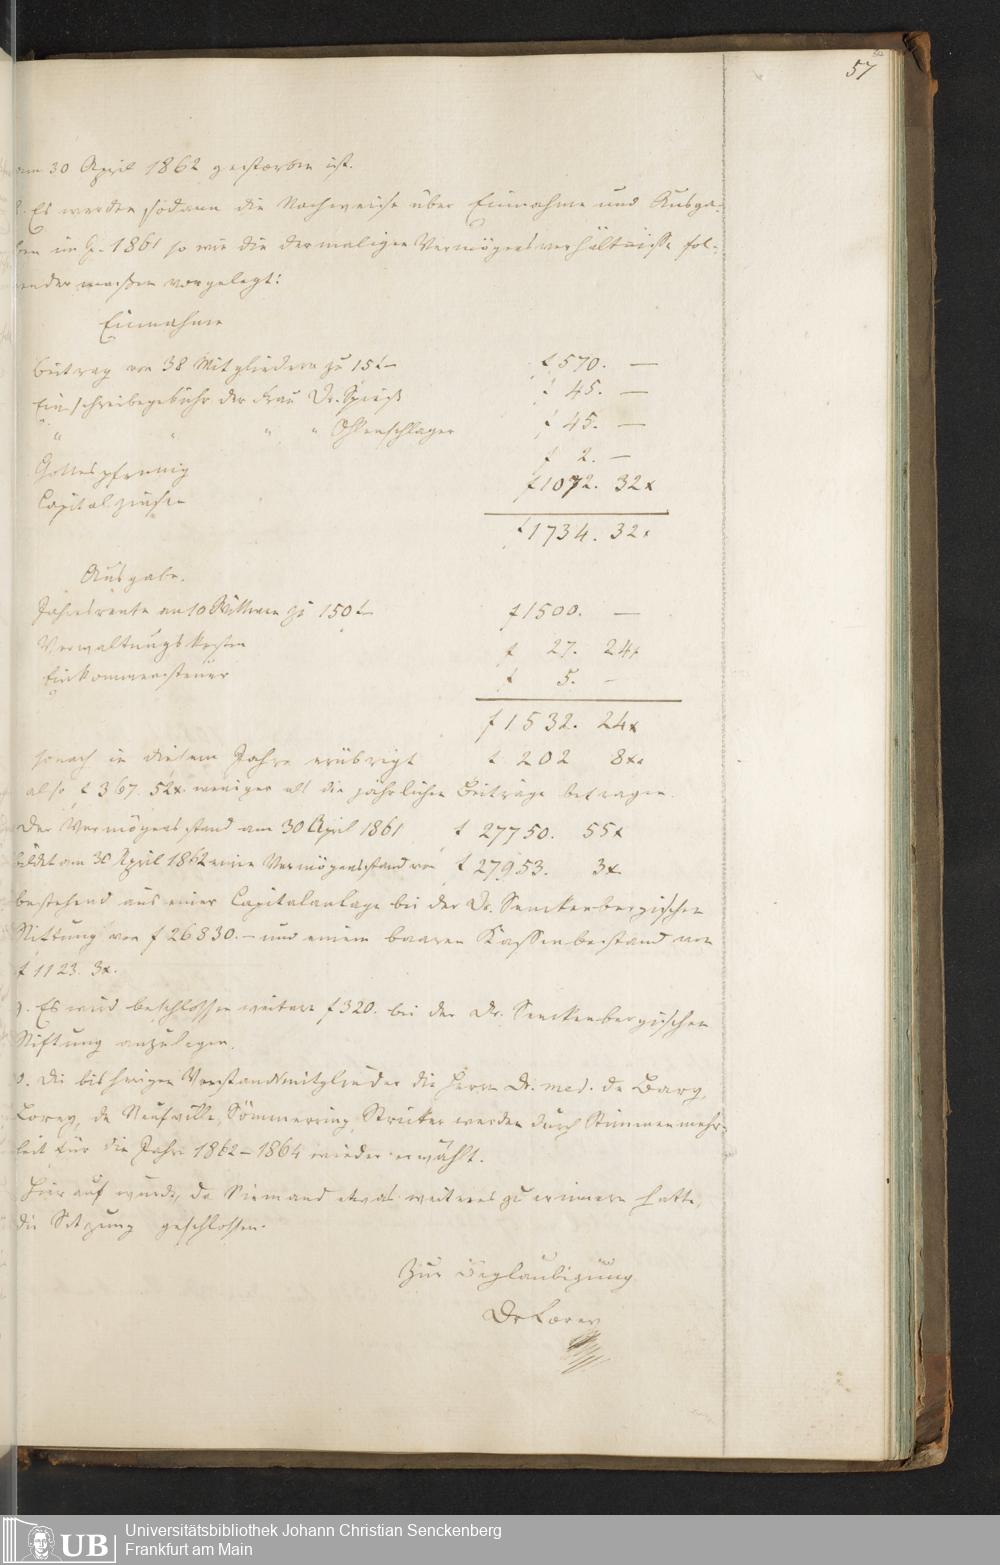 57
am 30 April 1862 gestorben ist.
Es werden sodann die Nachweise über Einnahme und Ausga-
ben im J. 1861 so wie die dermaligen Vermögensverhältnisse fol-
gender massen vorgelegt:
Einnahme
Beitrag von 38 Mitgliedern zu 15 f – f 570. —
Einschreibegebühr der Frau Dr. Spiess f 45. —
" " " " Ohlenschlager f 45. —
Gottespfennig f 2. —
Capitalzinsen f 1072. 32x
f 1734. 32x
Ausgabe.
Jahresrente an 10 Wittwen zu 150 f – f 1500. —
Verwaltungskosten f 27. 24x
Einkommensteuer f 5. –
f 1532. 24x
sonach in diesem Jahre erübrigt f 202 8x.
also f 367. 52x. weniger als die jährlichen Beiträge betragen.
Der Vermögensstand am 30 April 1861 f 27750. 55x
bildet am 30 April 1862 einen Vermögensstand von f 27953. 3x
bestehend aus einer Capitalanlage bei der Dr. Senckenbergischen
Stiftung von f 26830. – und einem baaren Kassenbestand von
f 1123. 3x.
Es wird beschlossen weitere f 320. bei der Dr. Senckenbergischen
Stiftung anzulegen.
Die bisherigen Vorstandsmitglieder die Herrn Dr. med. de Bary,
Lorey, de Neufville, Sömmerring, Stricker werden durch Stimmenmehr-
heit für die Jahre 1862–1864 wieder erwählt.
Hierauf wurde, da Niemand etwas weiteres zu erinnern hatte,
die Sitzung geschlossen.
Zur Beglaubigung
Dr Lorey
UB
Universitätsbibliothek Johann Christian Senckenberg
Frankfurt am Main